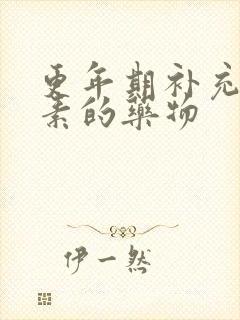 更年期补充
素的藥物
伊一然